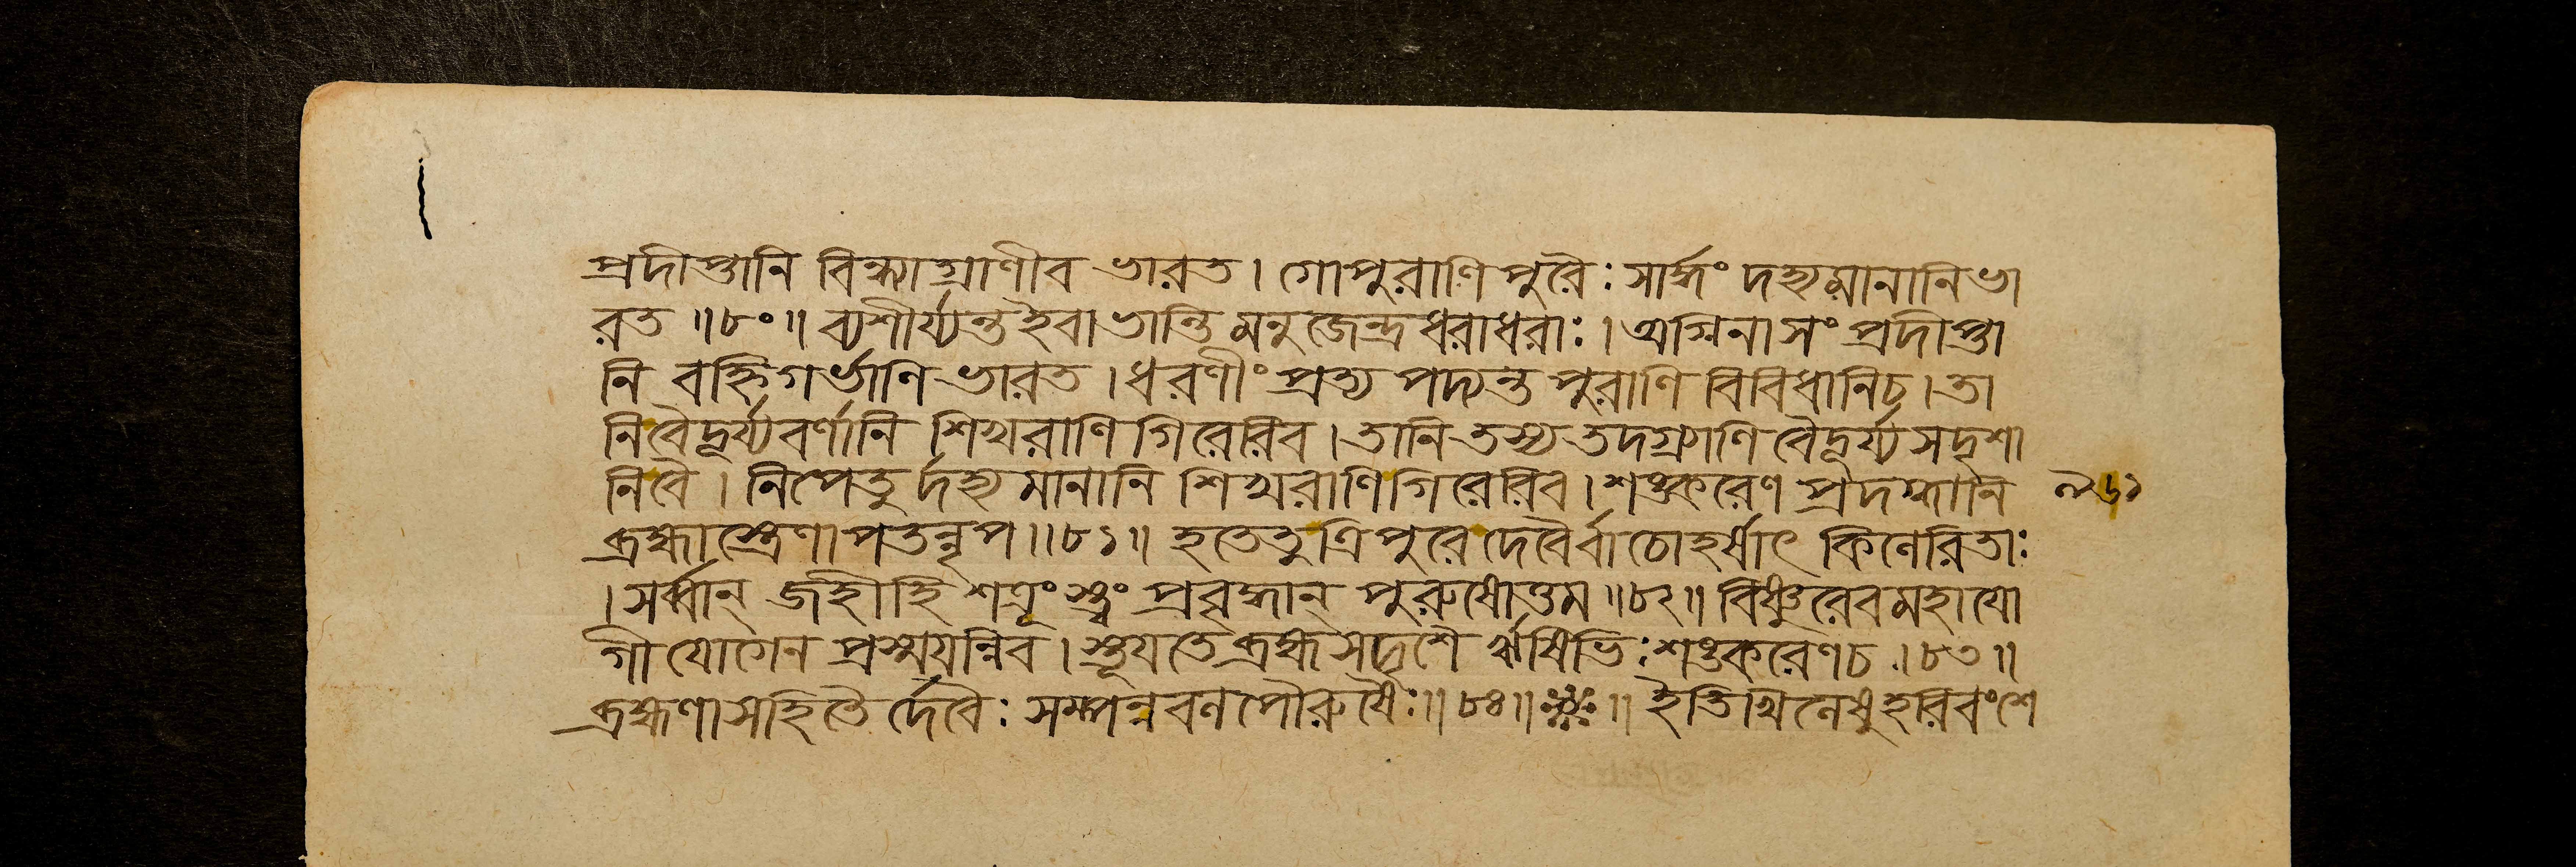 প্রদীপ্তানি বিন্ধ্যাগ্রাণীব ভারত। গোপুরাণি পুরৈঃ সার্দ্ধং দহ্যমানানি ভা
রত ॥৮০॥ ব্যশীর্য্যন্ত ইবাভান্তি মনুজেন্দ্র ধরাধরাঃ। অগ্নিনা সং প্রদীপ্তা
নি বহ্নিগর্ভাণি ভারত। ধরণীং প্রত্যপদ্যন্ত পুরাণি বিবিধানি চ। তা
নি বৈদূর্য্যবর্ণানি শিখরাণি গিরেরিব। তানি তস্য তদগ্রাণি বৈদূর্য্য সদৃশা
নি বৈ। নিপেতুর্দহ্যমানানি শিখরাণি গিরেরিব। শঙ্করেণ প্রদগ্ধানি
ব্রহ্মাস্ত্রেণাপতন্নৃপ॥৮১॥ হতে তু ত্রিপুরে দেবৈর্বাঢো হর্ষাৎ কিণেরিতাঃ
। সর্ব্বান্ জহীহি শত্রূংস্ত্বং প্রবৃদ্ধান্ পুরুষোত্তম ॥৮২॥ বিষ্ণুরেব মহাযো
গী যোগেন প্রস্ময়ন্নিব। স্তূয়তে ব্রহ্মসদৃশৈ র্ঋষিভিঃ শঙ্করেণ চ।৮৩॥
ব্রহ্মণা সহিতৈ র্দেবৈঃ সম্পন্নবল পৌরুষৈঃ॥৮৪॥ ॥ ইতি খিলেষু হরিবংশে